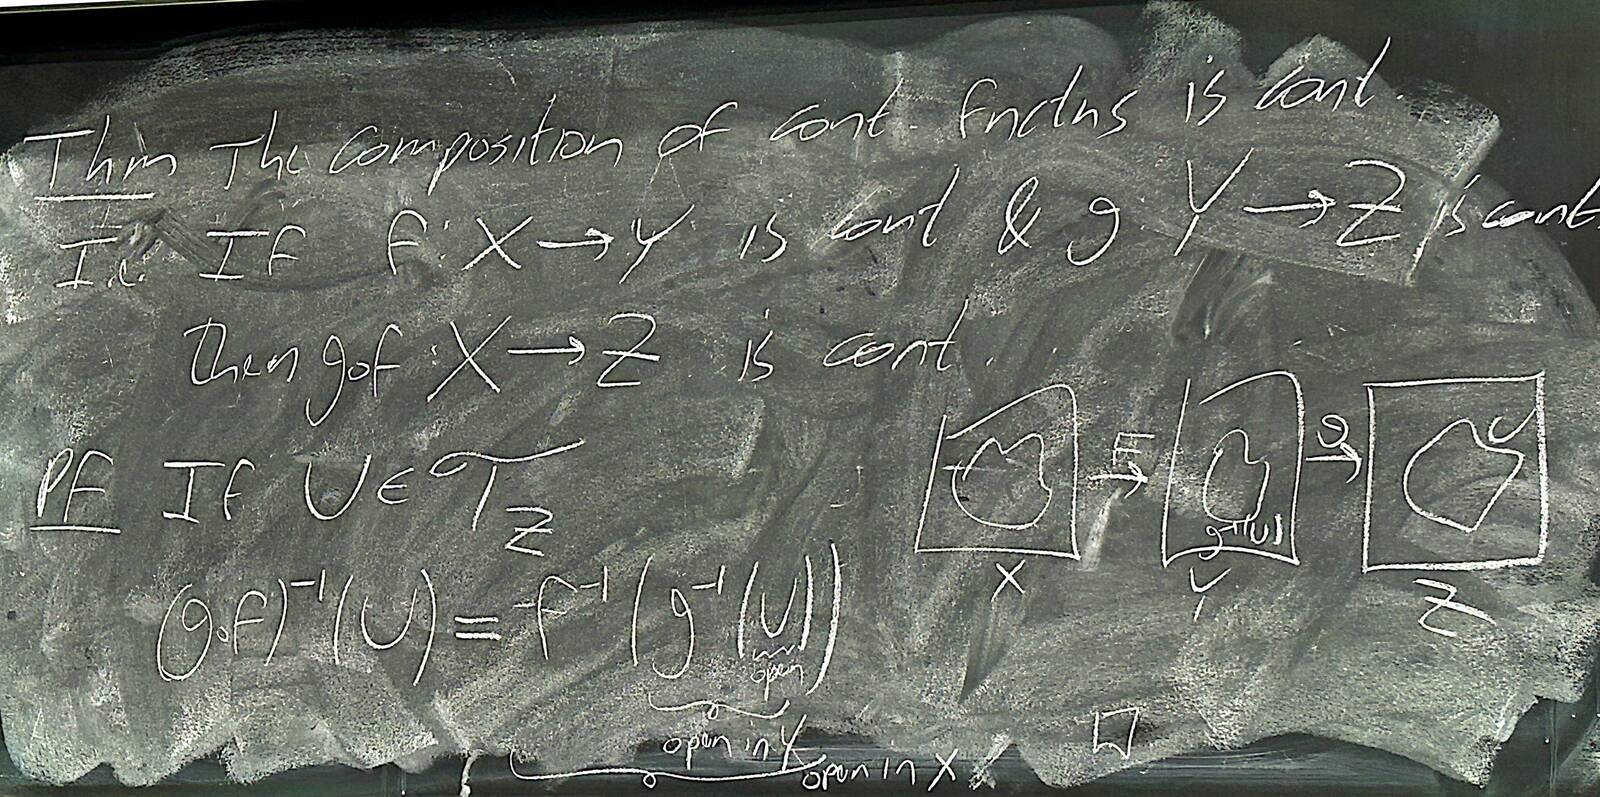 Thm The composition of cont. fnctns is cont.
I.e. If f: X → Y is cont & g Y → Z is cont.
then g∘f: X → Z is cont.
Pf If U ∈ 𝒯_Z
(g∘f)⁻¹(U) = f⁻¹(g⁻¹(U))
open
open in Y
open in X
f g U
g⁻¹(U)
X Y Z
□